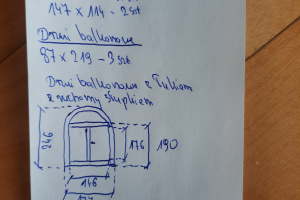 147 x 114 - 2szt
Drzwi balkonowe
87 x 219 - 3szt
Drzwi balkonowe z Łukiem
z ruchomy słupkiem
246
176
190
146
177